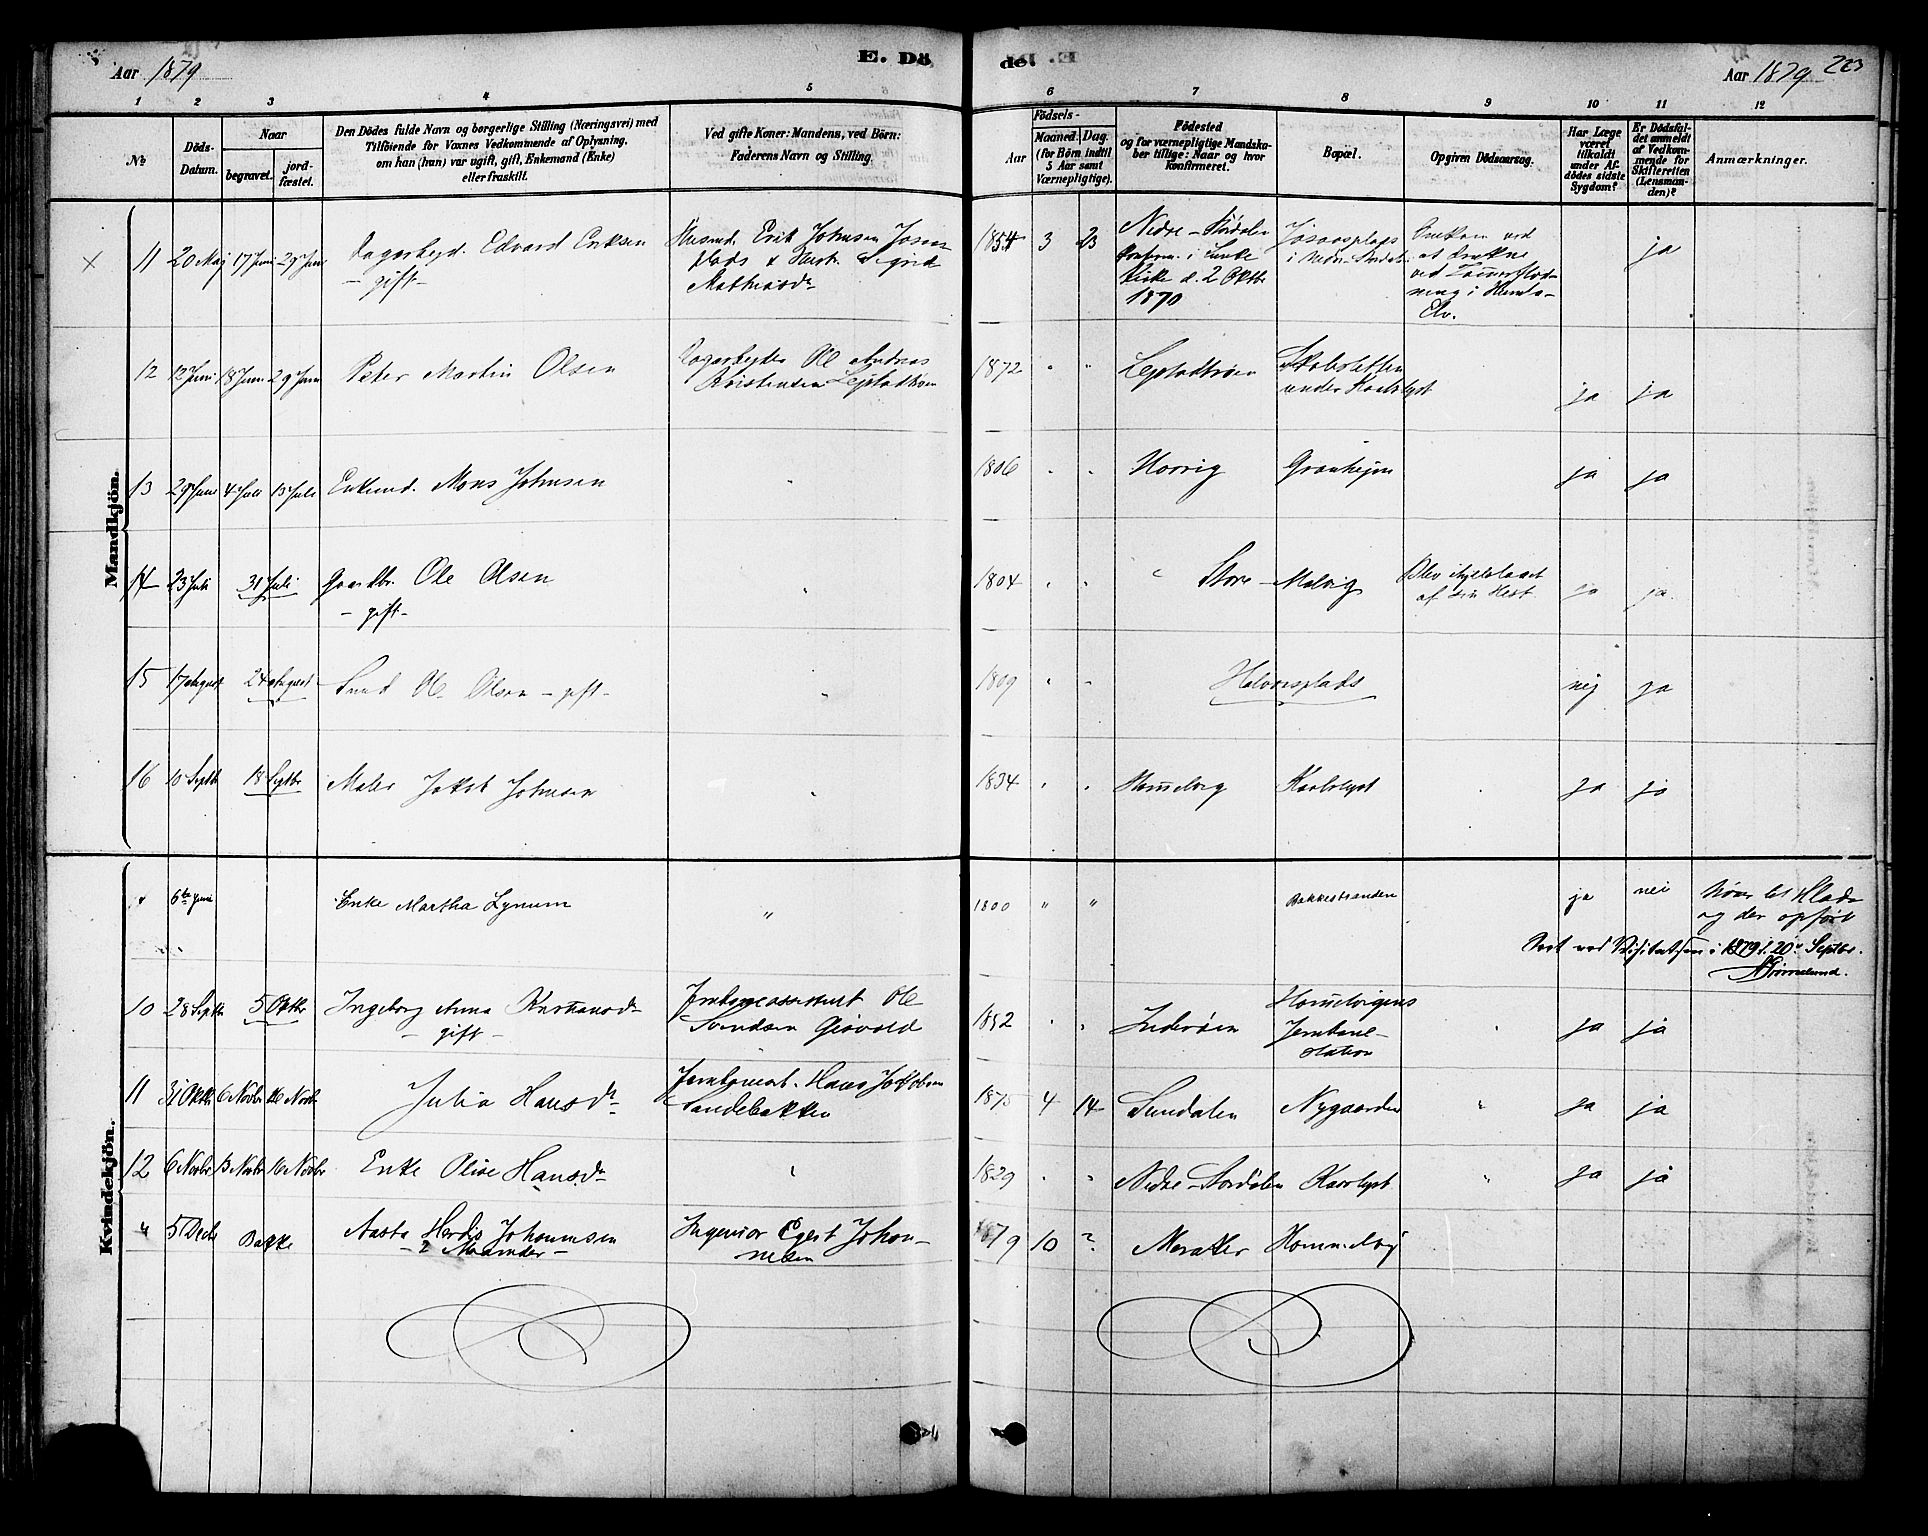 Aar 1879
E. Dö
de.
Aar 1879
223
1 2 3 4 5 6 7 8 9 10 11 12
№
Döds-
Datum.
Naar
begravet.
jord-
fæstet.
Den Dödes fulde Navn og borgerlige Stilling (Næringsvei) med
Tilföiende for Voxnes Vedkommende af Oplysning,
om han (hun) var ugift, gift, Enkemand (Enke)
eller fraskilt.
Ved gifte Koner: Mandens, ved Börn:
Faderens Navn og Stilling.
Födsels-
Aar
Maaned. Dag.
(for Börn indtil
5 Aar samt
Værnepligtige).
Födested
og for værnepligtige Mandska-
ber tillige: Naar og hvor
konfirmeret.
Bopæl.
Opgiven Dödsaarsag.
Har Læge
været
tilkaldt
under Af-
dödes sidste
Sygdom?
Er Dödsfal-
det anmeldt
af Vedkom-
mende for
Skifteretten
(Lensman-
den)?
Anmærkninger.
Mandkjön.
11 20 Maj 17 Juni 29 Juni
Dagarbejd. Edvard Eriksen
- gift -
Husmd. Erik Johnsen
plads & Hustr. Sigrid
1854 3 23
Nedre-Stördalen
Konfirm. i Laake
Kirke d. 2 Oktbr
1870
i Nedre-Stördal.
Omkom ved
at drukne
ved Tömmerflöd-
ning i Homla-
Elv.
ja
12 12 Juni 18 Juni 29 Juni
Peter Martin Olsen
Dagarbejder Ole Andreas
Kristensen Lejstadtröen
1872 " "
Lejstadtröen
under Karlslyst
ja ja
13 29 Juni 4 Juli 13 Juli
Enkemd. Mons Johnsen
"
1806 " "
ja ja
14 23 Juli 31 Juli
Gaardbr. Ole Olsen
- gift -
"
1804 " "
Store-Malvig
Blev ihjelslaaet
af sin Hest.
ja ja.
15 17 August 24 August
Ole Olsen - gift -
"
1809 " "
Halvorsplads
nej ja
16 10 Septbr 18 Septbr
Maler Jakob Johnsen
"
1834 " "
Hommelvig Karlslyst
ja ja
Kvindekjön.
6te Juni
Enke Martha Lynum
"
1800 " "
Bakkestranden
ja nei
og der opfört
Seet ved Visitatsen i 1879 d. 20de Septbr.
10 28 Septbr 5 Oktbr
Ingeborg Anna
- gift -
Jernbaneassistent Ole
Svendsen Gisvold
1852 " "
Inderöen
Hommelvigens
Jernbane-
station
ja ja
11 31 Oktbr 6 Novbr 16 Novbr
Julia Hansdr
Jernbanearb. Hans Jakobsen
Sandebakken
1875 4 14
Sundalen Nygaarden
"
ja ja
12 6 Novbr 13 Novbr 16 Novbr
Enke Olive Hansdr
"
1829 " "
Nedre-Stördalen Karlslyst
"
ja ja
" 5 Decbr Bakke
Aasta Herdis Johannesen
- 2 Maaneder -
Ingeniör Egert Johan-
nesen
1879 10 ?
Meraker Hommelvig